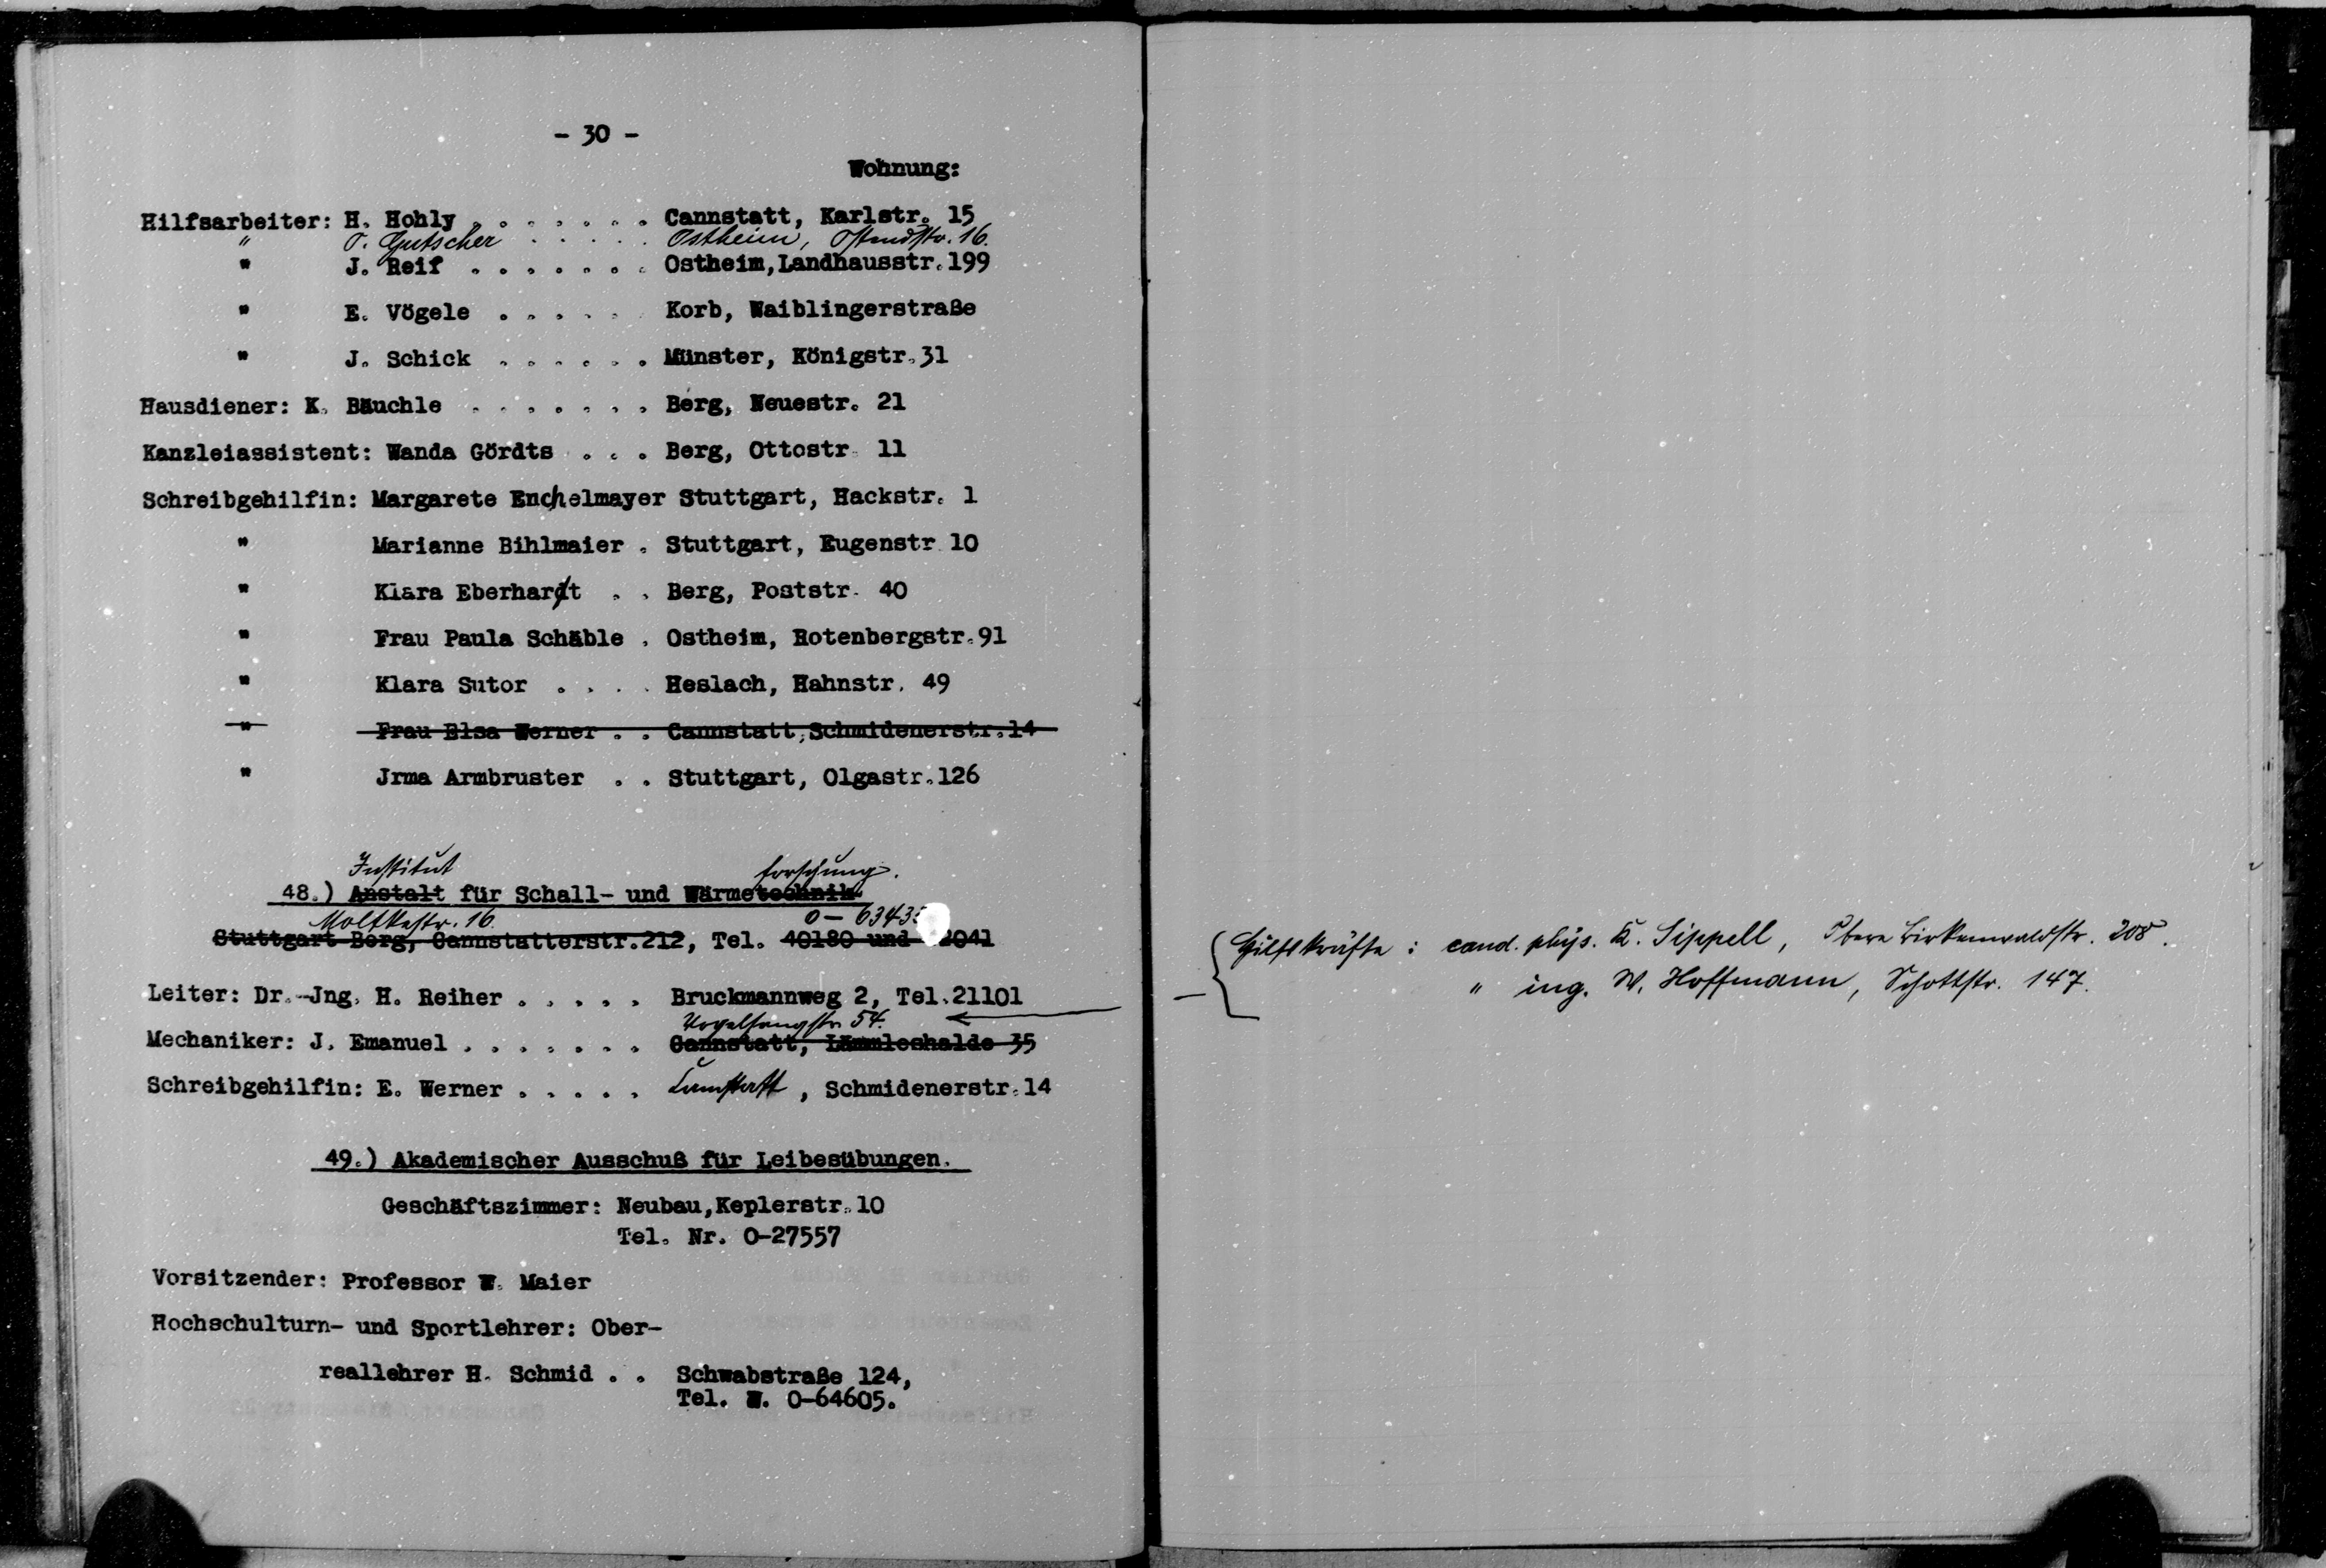 - 30 -
Wohnung:
Hilfsarbeiter: H. Hohly . . . . . . . Cannstatt, Karlstr. 15
" O. Gutscher . . . . . Ostheim, Ostendstr. 16.
" J. Reif . . . . . . . Ostheim,Landhausstr.199
" E. Vögele . . . . . . Korb, Waiblingerstraße
" J. Schick . . . . . . Münster, Königstr.31
Hausdiener: K. Bäuchle . . . . . . . Berg, Neuestr. 21
Kanzleiassistent: Wanda Gördts . . . Berg, Ottostr. 11
Schreibgehilfin: Margarete Enchelmayer Stuttgart, Hackstr. 1
" Marianne Bihlmaier . Stuttgart, Eugenstr 10
" Klara Eberhardt . . Berg, Poststr. 40
" Frau Paula Schäble . Ostheim, Rotenbergstr.91
" Klara Sutor . . . . Heslach, Hahnstr. 49
" Frau Elsa Werner . . Cannstatt,Schmidenerstr.14
" Jrma Armbruster . . Stuttgart, Olgastr.126
Institut forschung.
48.) Anstalt für Schall- und Wärmetechnik
Moltkestr. 16. 0 - 6343
Stuttgart-Berg, Cannstatterstr.212, Tel. 40180 und 2041
Leiter: Dr.-Jng. H. Reiher . . . . . Bruckmannweg 2, Tel.21101
Vogelsangstr. 54.
Mechaniker: J. Emanuel . . . . . . . Cannstatt, Lämmleshalde 35
Schreibgehilfin: E. Werner . . . . . Cannstatt, Schmidenerstr.14
49.) Akademischer Ausschuß für Leibesübungen.
Geschäftszimmer: Neubau,Keplerstr.10
Tel. Nr. 0-27557
Vorsitzender: Professor W. Maier
Hochschulturn- und Sportlehrer: Ober-
reallehrer H. Schmid . . Schwabstraße 124,
Tel. W. 0-64605.
Hilfskräfte : cand. phys. K. Sippell, Obere Birkenwaldstr. 208.
" ing. W. Hoffmann, Schottstr. 147.